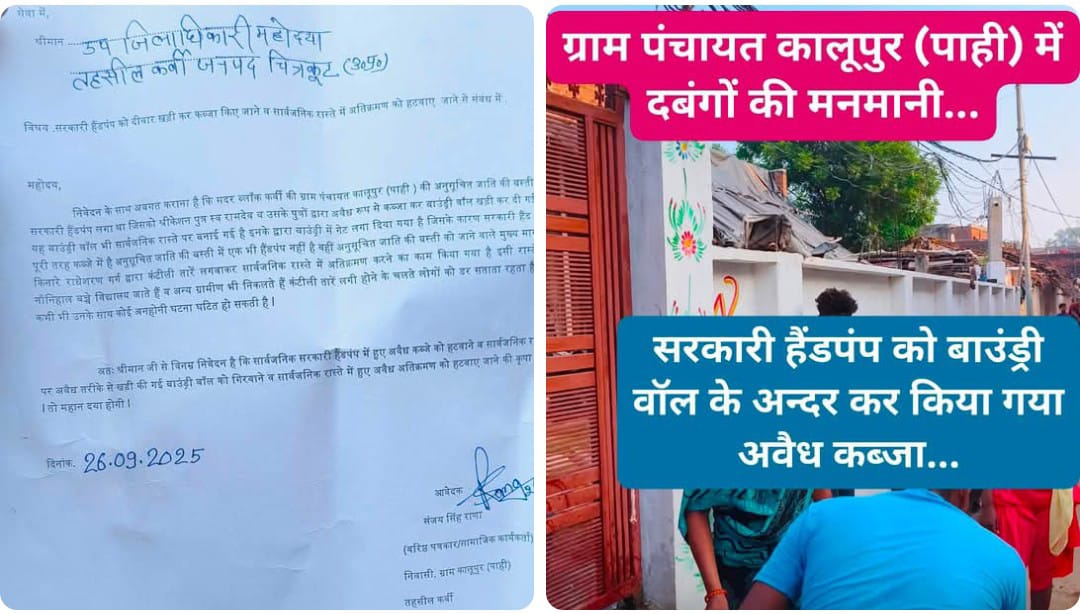 सेवा में,
श्रीमान उप जिलाधिकारी महोदया
तहसील कर्वी जनपद चित्रकूट (उ०प्र०)
विषय .सरकारी हैंडपंप को दीवार खड़ी कर कब्जा किए जाने व सार्वजनिक रास्ते में अतिक्रमण को हटवाए जाने से संबंध में .
महोदय,
निवेदन के साथ अवगत कराना है कि सदर ब्लॉक कर्वी की ग्राम पंचायत कालूपुर (पाही ) की अनुसूचित जाति की बस्ती
सरकारी हैंडपंप लगा था जिसको श्रीकेशन पुत्र स्व रामदेव व उसके पुत्रों द्वारा अवैध रूप से कब्जा कर बाउंड्री वॉल खड़ी कर दी गई
यह बाउंड्री वॉल भी सार्वजनिक रास्ते पर बनाई गई है इनके द्वारा बाउंड्री में गेट लगा दिया गया है जिसके कारण सरकारी हैंड
पूरी तरह कब्जे में है अनुसूचित जाति की बस्ती में एक भी हैंडपंप नहीं है वहीं अनुसूचित जाति की बस्ती को जाने वाले मुख्य मा
किनारे राधेशरण गर्ग द्वारा कंटीली तारें लगवाकर सार्वजनिक रास्ते में अतिक्रमण करने का काम किया गया है इसी रास्ते
नौनिहाल बच्चे विद्यालय जाते हैं व अन्य ग्रामीण भी निकलते हैं कंटीली तारें लगी होने के चलते लोगों को डर सताता रहता है
कभी भी उनके साथ कोई अनहोनी घटना घटित हो सकती है।
अतः श्रीमान जी से विनम्र निवेदन है कि सार्वजनिक सरकारी हैंडपंप में हुए अवैध कब्जे को हटवाने व सार्वजनिक
पर अवैध तरीके से खड़ी की गई बाउंड्री वॉल को गिरवाने व सार्वजनिक रास्ते में हुए अवैध अतिक्रमण को हटवाए जाने की कृपा
। तो महान दया होगी।
दिनांक. 26.09.2025
आवेदक
संजय सिंह राणा
(वरिष्ठ पत्रकार/सामाजिक कार्यकर्ता)
निवासी. ग्राम कालूपुर (पाही)
तहसील कर्वी
ग्राम पंचायत कालूपुर (पाही) में
दबंगों की मनमानी...
सरकारी हैंडपंप को बाउंड्री
वॉल के अन्दर कर किया गया
अवैध कब्जा...